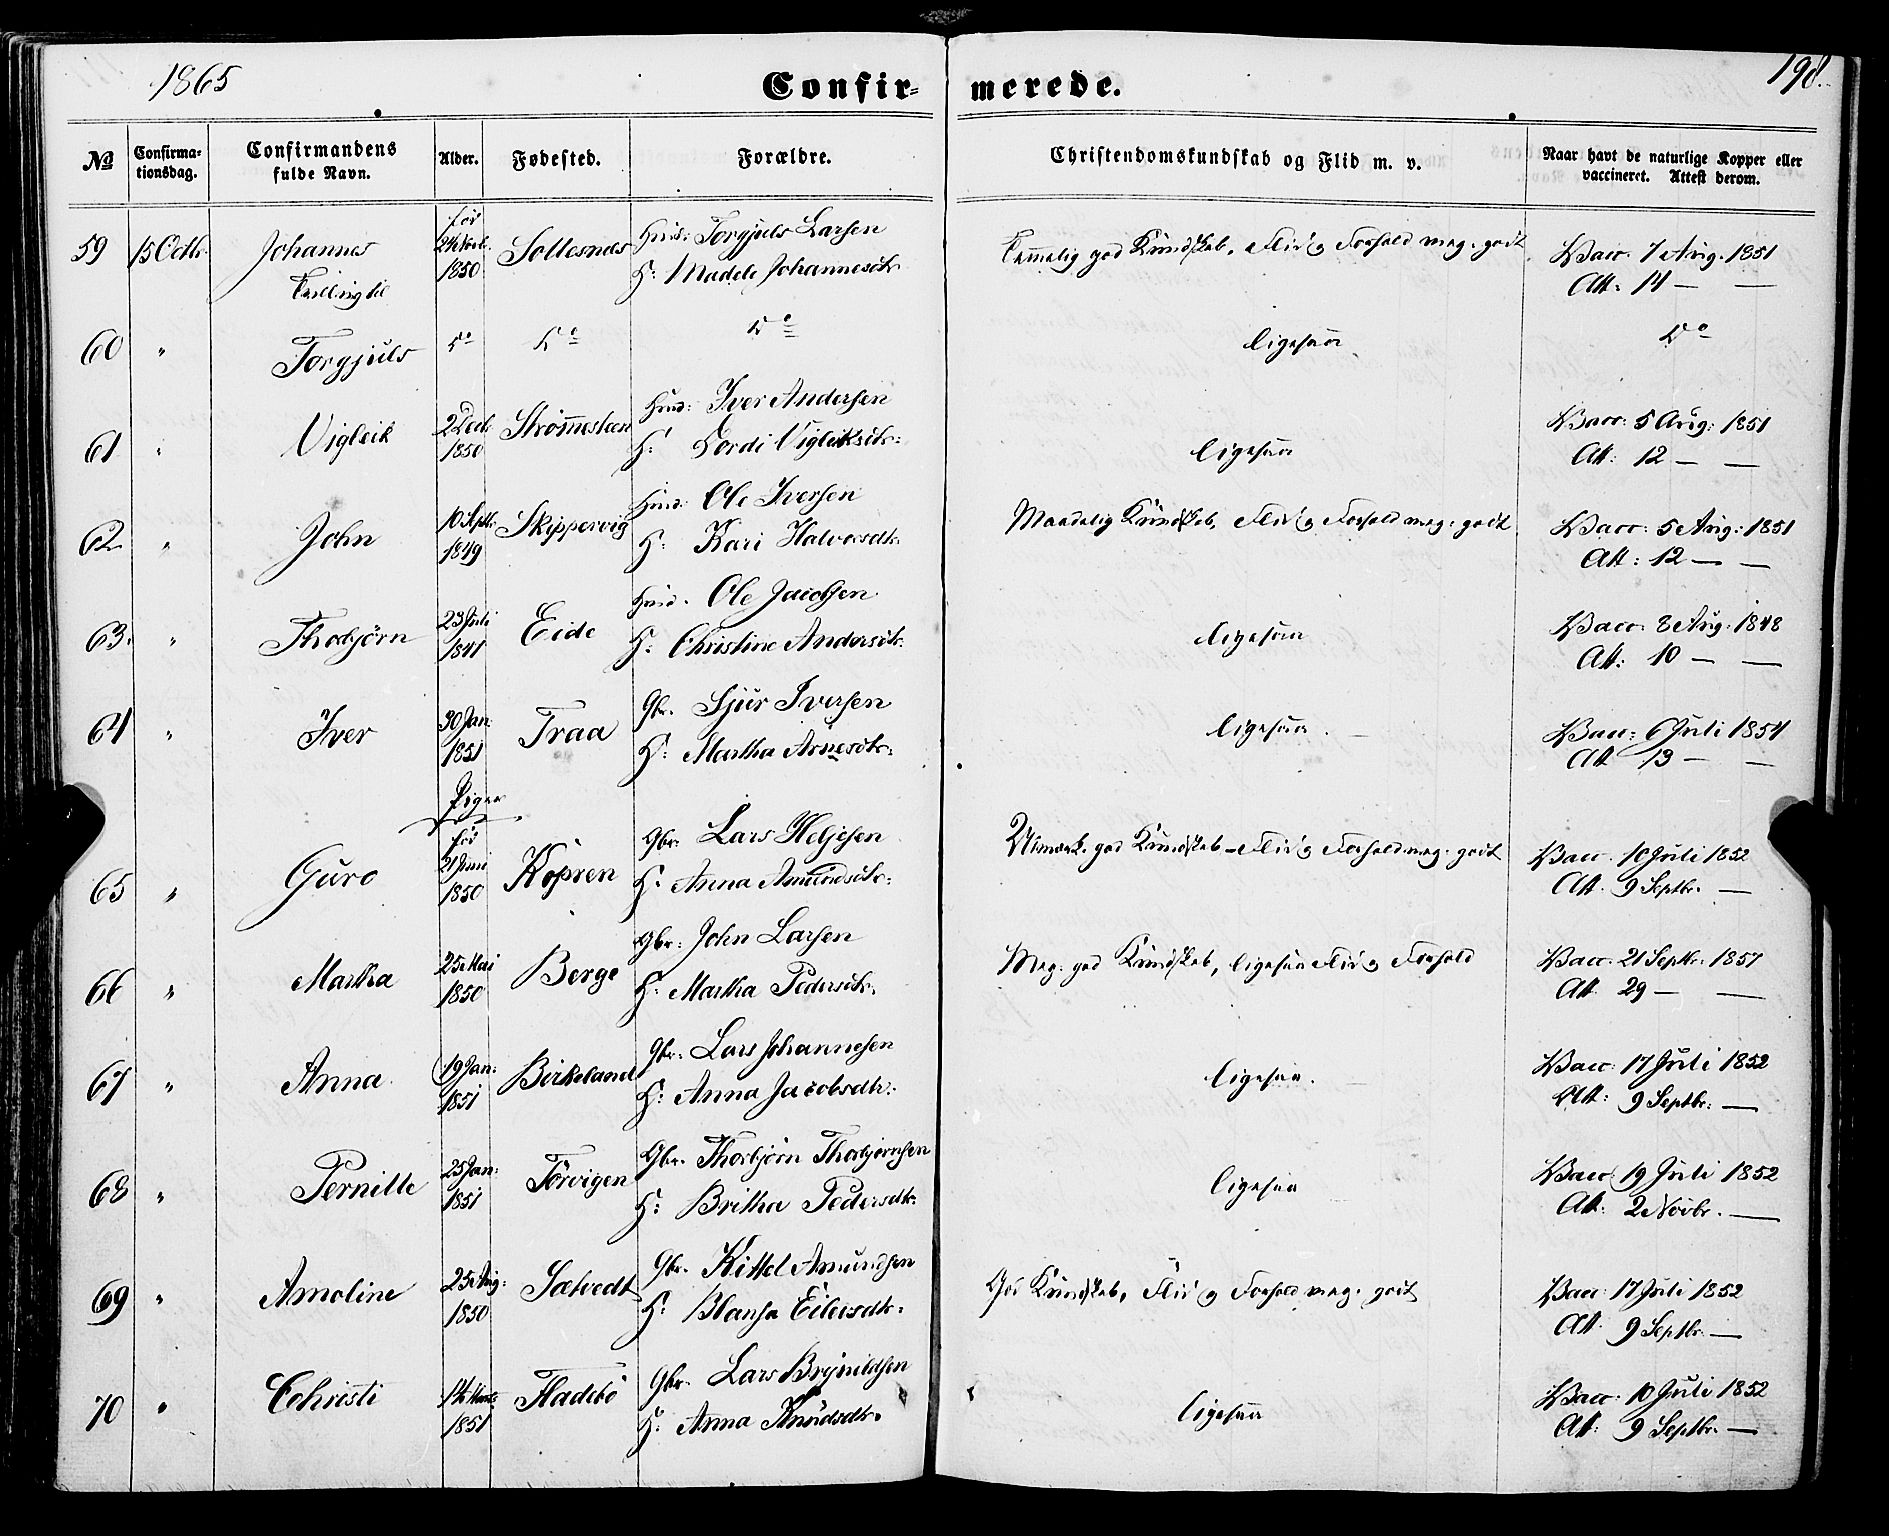 1865
Confir-
merede.
198.
No
Confirma-
tionsdag.
Confirmandens
fulde Navn.
Alder.
Fødested.
Forældre.
Christendomskundskab og Flid m. v.
Naar havt de naturlige Kopper eller
vaccineret. Attest derom.
59 15 Octbr. Johannes
Tvilling til
fød
1850
Huus: Torgjuls Larsen
H: Madele Johannesdtr
Temmelig god Kundskab, Flid og Forhold meg. godt
Vacc. 7 Aug. 1851
Att: 14 — —
60 " Torgjuls do do do
ligesaa
do
61 " Vigleik
2 Decbr
1850
Strømesteen
Huus: Iver Andersen
H: Gordi Vigleiksdtr:
ligesaa
Vacc: 5 Aug: 1851
Att: 12 — —
62 " John
10 Septbr
1849
Skippervig
Huus: Ole Iversen
H: Kari Halvorsdtr.
Maadelig Kundskab, Flid og Forhold meg: godt
Vacc: 5 Aug: 1851
Att: 12 — —
63. " Thorbjörn
23 Juli
1847
Eide
Huus. Ole Jacobsen.
H: Christine Andersdtr.
ligesaa
Vacc: 8 Aug: 1848
Att: 10 — —
64 " Iver
30 Jan:
1851
Traa
Gbr. Sjur Iversen
H: Martha Arnesdtr:
ligesaa.
Vacc: 6 Juli 1854
Att 13 — —
Piger
65 " Guro
fød
21 Juni
1850
Kopren
Gbr. Lars Heljesen
H: Anna Amundsdtr:
Udmærk. god Kundskab - Flid og Forhold meg. godt
Vacc. 10 Juli 1852
Att. 9 Septbr. —
66 " Martha
25 Mai
1850
Berge
Gbr: John Larsen
H: Martha Pedersdtr.
Meg: god Kundskab, ligesaa Flid og Forhold
Vacc: 21 Septbr. 1857
Att. 29 — —
67 " Anna
19 Jan:
1851
Birkeland
Gbr: Lars Johannesen
H: Anna Jacobsdtr:
ligesaa.
Vacc: 17 Juli 1852
Att: 9 Septbr: —
68 " Pernille
25 Jan:
1851
Törvigen
Gbr. Thorbjörn Thorbjørnsen
H: Britha Pedersdtr.
ligesaa
Vacc 19 Juli 1852
Att: 2 Novbr. —
69 " Amoline
25 Aug:
1850
Sælvedt
Gbr. Kittel Amundsen
H: Blansa Eilersdtr:
God Kundskab, Flid og Forhold meg. godt
Vacc: 17 Juli 1852
Att. 9 Septbr. —
70 " Christi
1851
Fladebö
Gbr. Lars Brynildsen
H: Anna Knudsdtr.
ligesaa
Vacc: 10 Juli 1852
Att: 9 Septbr. —